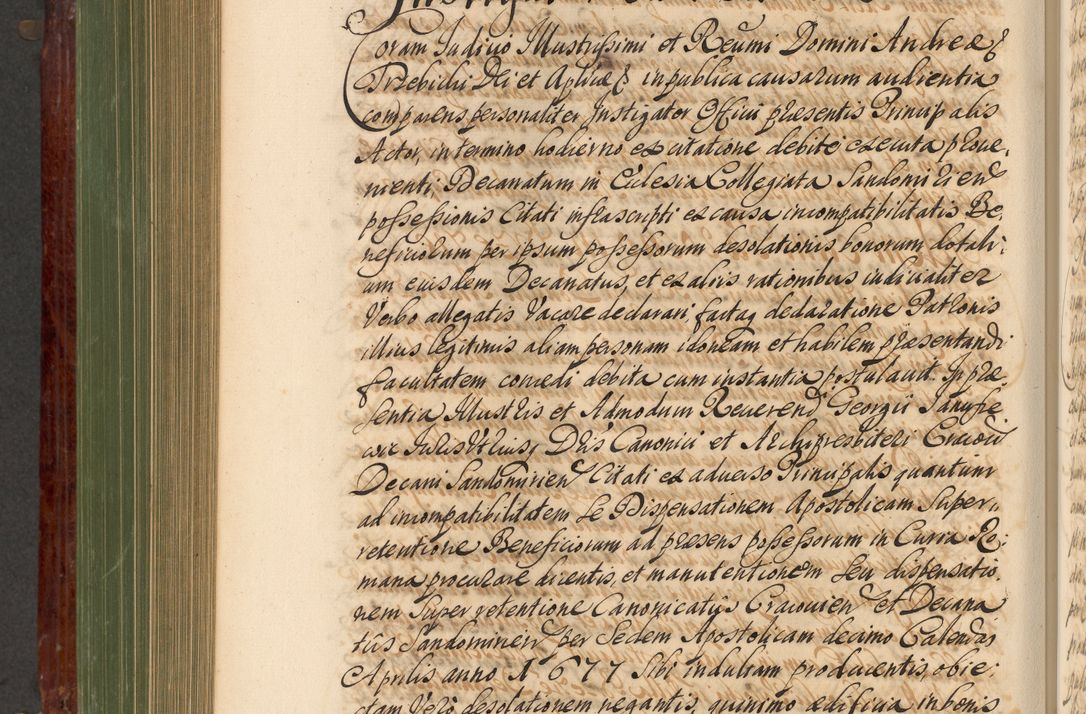 Coram Judicio Illustrissimi et Reu͠mi Domini Andreæ
Trzebicki Dei et Ap͠licæ & in publica causarum audientia
comparens personaliter Instigator Officii præsentis Principalis
Actor, in termino hodierno ex citatione debite executa proue,
nienti, Decanatum in Ecclesia Collegiata Sandomirien
possessionis Citati infrascripti ex causa incompatibilitatis Be,
neficiorum per ipsum possessorum desolationis bonorum dotali,
um eiusdem Decanatus, et ex aliis rationibus iudicialiter
Verbo allegatis Vacare declarari, factaq declaratione Patronis
illius legitimis aliam personam idoneam et habilem præsentandi
facultatem concedi debita cum instantia postulauit. In præ
sentia Illustris et Admodum Reuerend Georgii
Juris Vtrius, Dris Canonici et Archipresbiteri Cracou
Decani Sandomirien Citati ex aduerso Principalis quantum
ad incompatibilitatem se Dispensationem Apostolicam super,
retentione Beneficiorum ad præsens possessorum in Curia Ro:
mana procurare dicentis, et manutentionem seu dispensatio,
nem super retentione Canonicatus Cracouien et Decana
tus Sandomirien per Sedem Apostolicam decimo Calendas
Aprilis anno 1677 sibi indultam producentis, obie:
ctam Vero desolationem negantis, quinimo ædificia in bonis